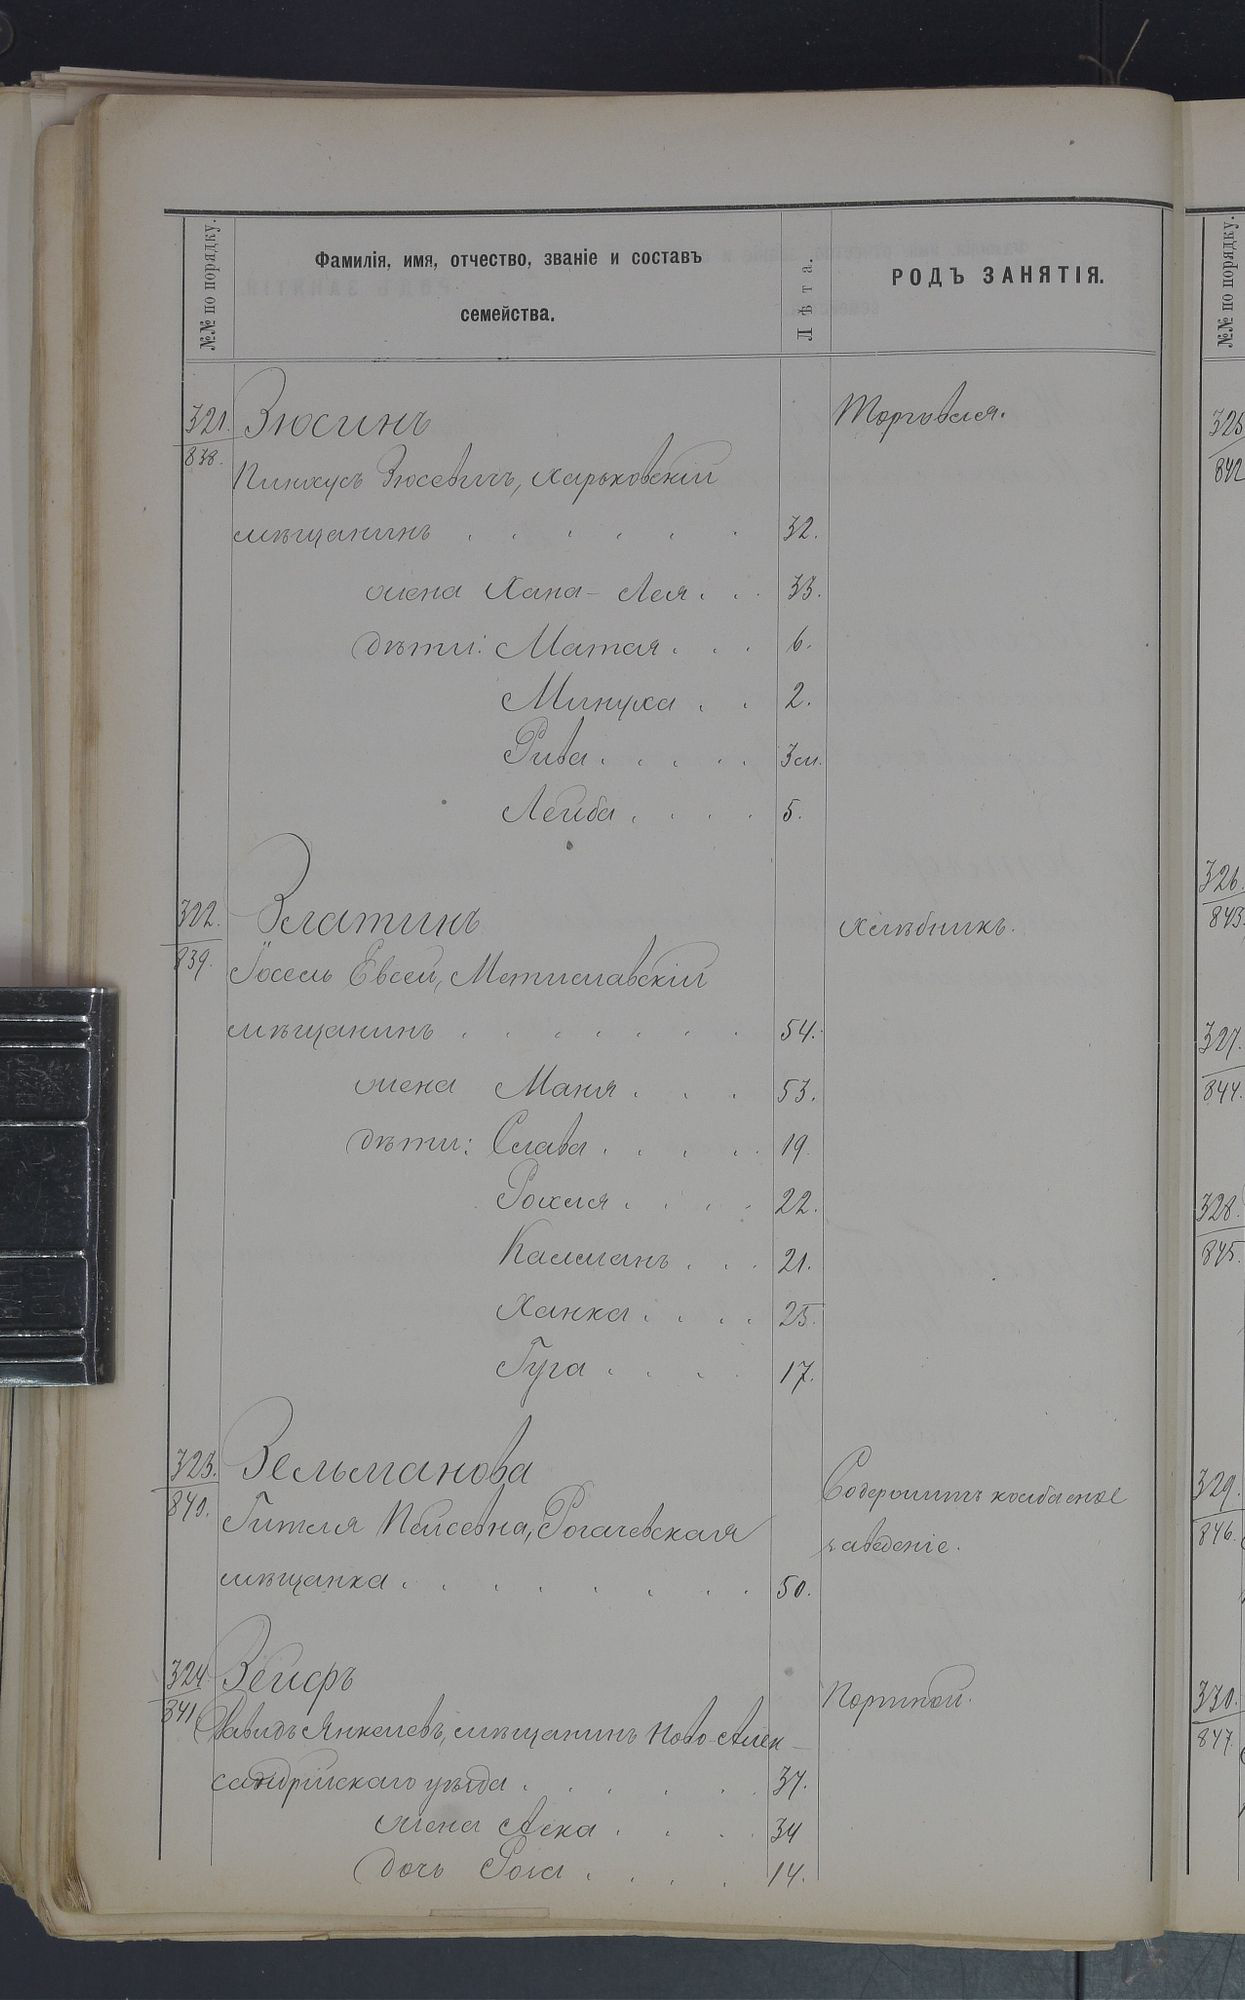 №№ по порядку.
Фамилія, имя, отчество, званіе и составъ
семейства.
Лѣта.
РОДЪ ЗАНЯТІЯ.
№№ по порядку.
321. Зюсинъ Торговля.
838.
Пинхусъ Зюсевичъ, Харьковскій
мѣщанинъ . . . . . . 32.
жена Хана-Лея . . . 33.
дѣти: Матля . . . 6.
Минуха . . 2.
Рива . . . . . 3 м.
Лейба . . . . 5.
322. Златинъ Хлѣбникъ.
839.
Іосель Евсей, Мстиславскій
мѣщанинъ . . . . . . 54.
жена Маня . . . 53.
дѣти: Слава . . . . . 19.
Рохля . . . . 22.
Калманъ . . . 21.
Ханка . . . . 25.
Гуга . . . . 17.
323. Зельманова Содержитъ колбасное
840.
Гитля Пейсевна, Рогачевская заведеніе.
мѣщанка . . . . . . . . 50.
324 Зейфъ Портной.
841
Давидъ Янкелевъ, мѣщанинъ Ново-Алек-
сандрійскаго уѣзда . . . . . . 37.
жена Аска . . . . 34
дочь Роза . . . . 14.
325
842
326.
843.
327.
844.
328.
845.
329.
846.
330.
847.